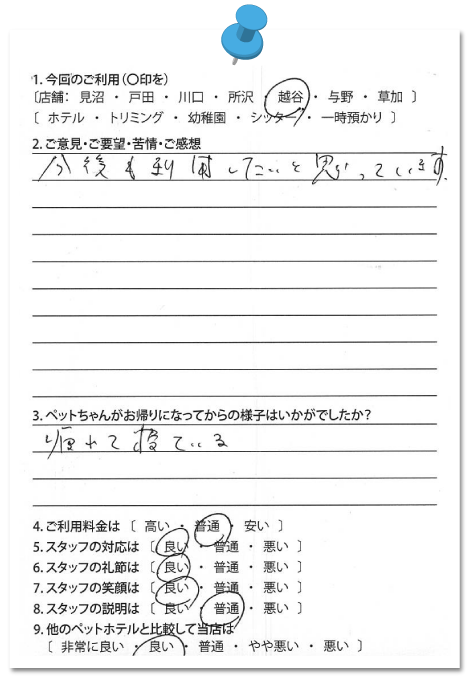 1. 今回のご利用(〇印を)
〔店舗： 見沼 ・ 戸田 ・ 川口 ・ 所沢 ・ 越谷 ・ 与野 ・ 草加 〕
〔 ホテル ・ トリミング ・ 幼稚園 ・ シッター ・ 一時預かり 〕
2. ご意見・ご要望・苦情・ご感想
今後も利用したいと思っています.
3. ペットちゃんがお帰りになってからの様子はいかがでしたか？
疲れて寝ている
4. ご利用料金は 〔 高い ・ 普通 ・ 安い 〕
5. スタッフの対応は 〔 良い ・ 普通 ・ 悪い 〕
6. スタッフの礼節は 〔 良い ・ 普通 ・ 悪い 〕
7. スタッフの笑顔は 〔 良い ・ 普通 ・ 悪い 〕
8. スタッフの説明は 〔 良い ・ 普通 ・ 悪い 〕
9. 他のペットホテルと比較して当店は
〔 非常に良い ・ 良い ・ 普通 ・ やや悪い ・ 悪い 〕